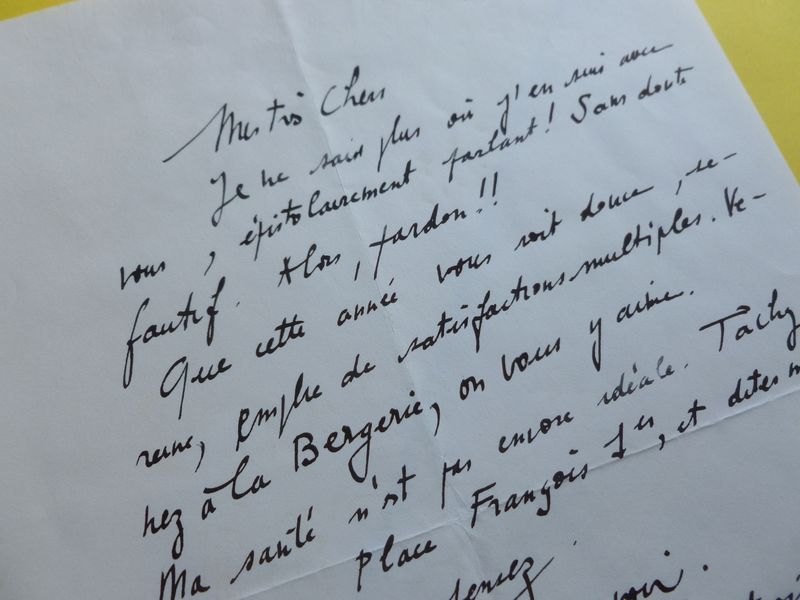 Mes très Chers
Je ne sais plus où j'en suis avec
vous, épistolairement parlant! Sans doute
fautif. Alors, pardon!!
Que cette année vous soit douce, se-
reine, emplie de satisfactions multiples. Ve-
nez à la Bergerie, on vous y aime.
Ma santé n'est pas encore idéale. Tachy
Place François 1er, et dites m
pensez.